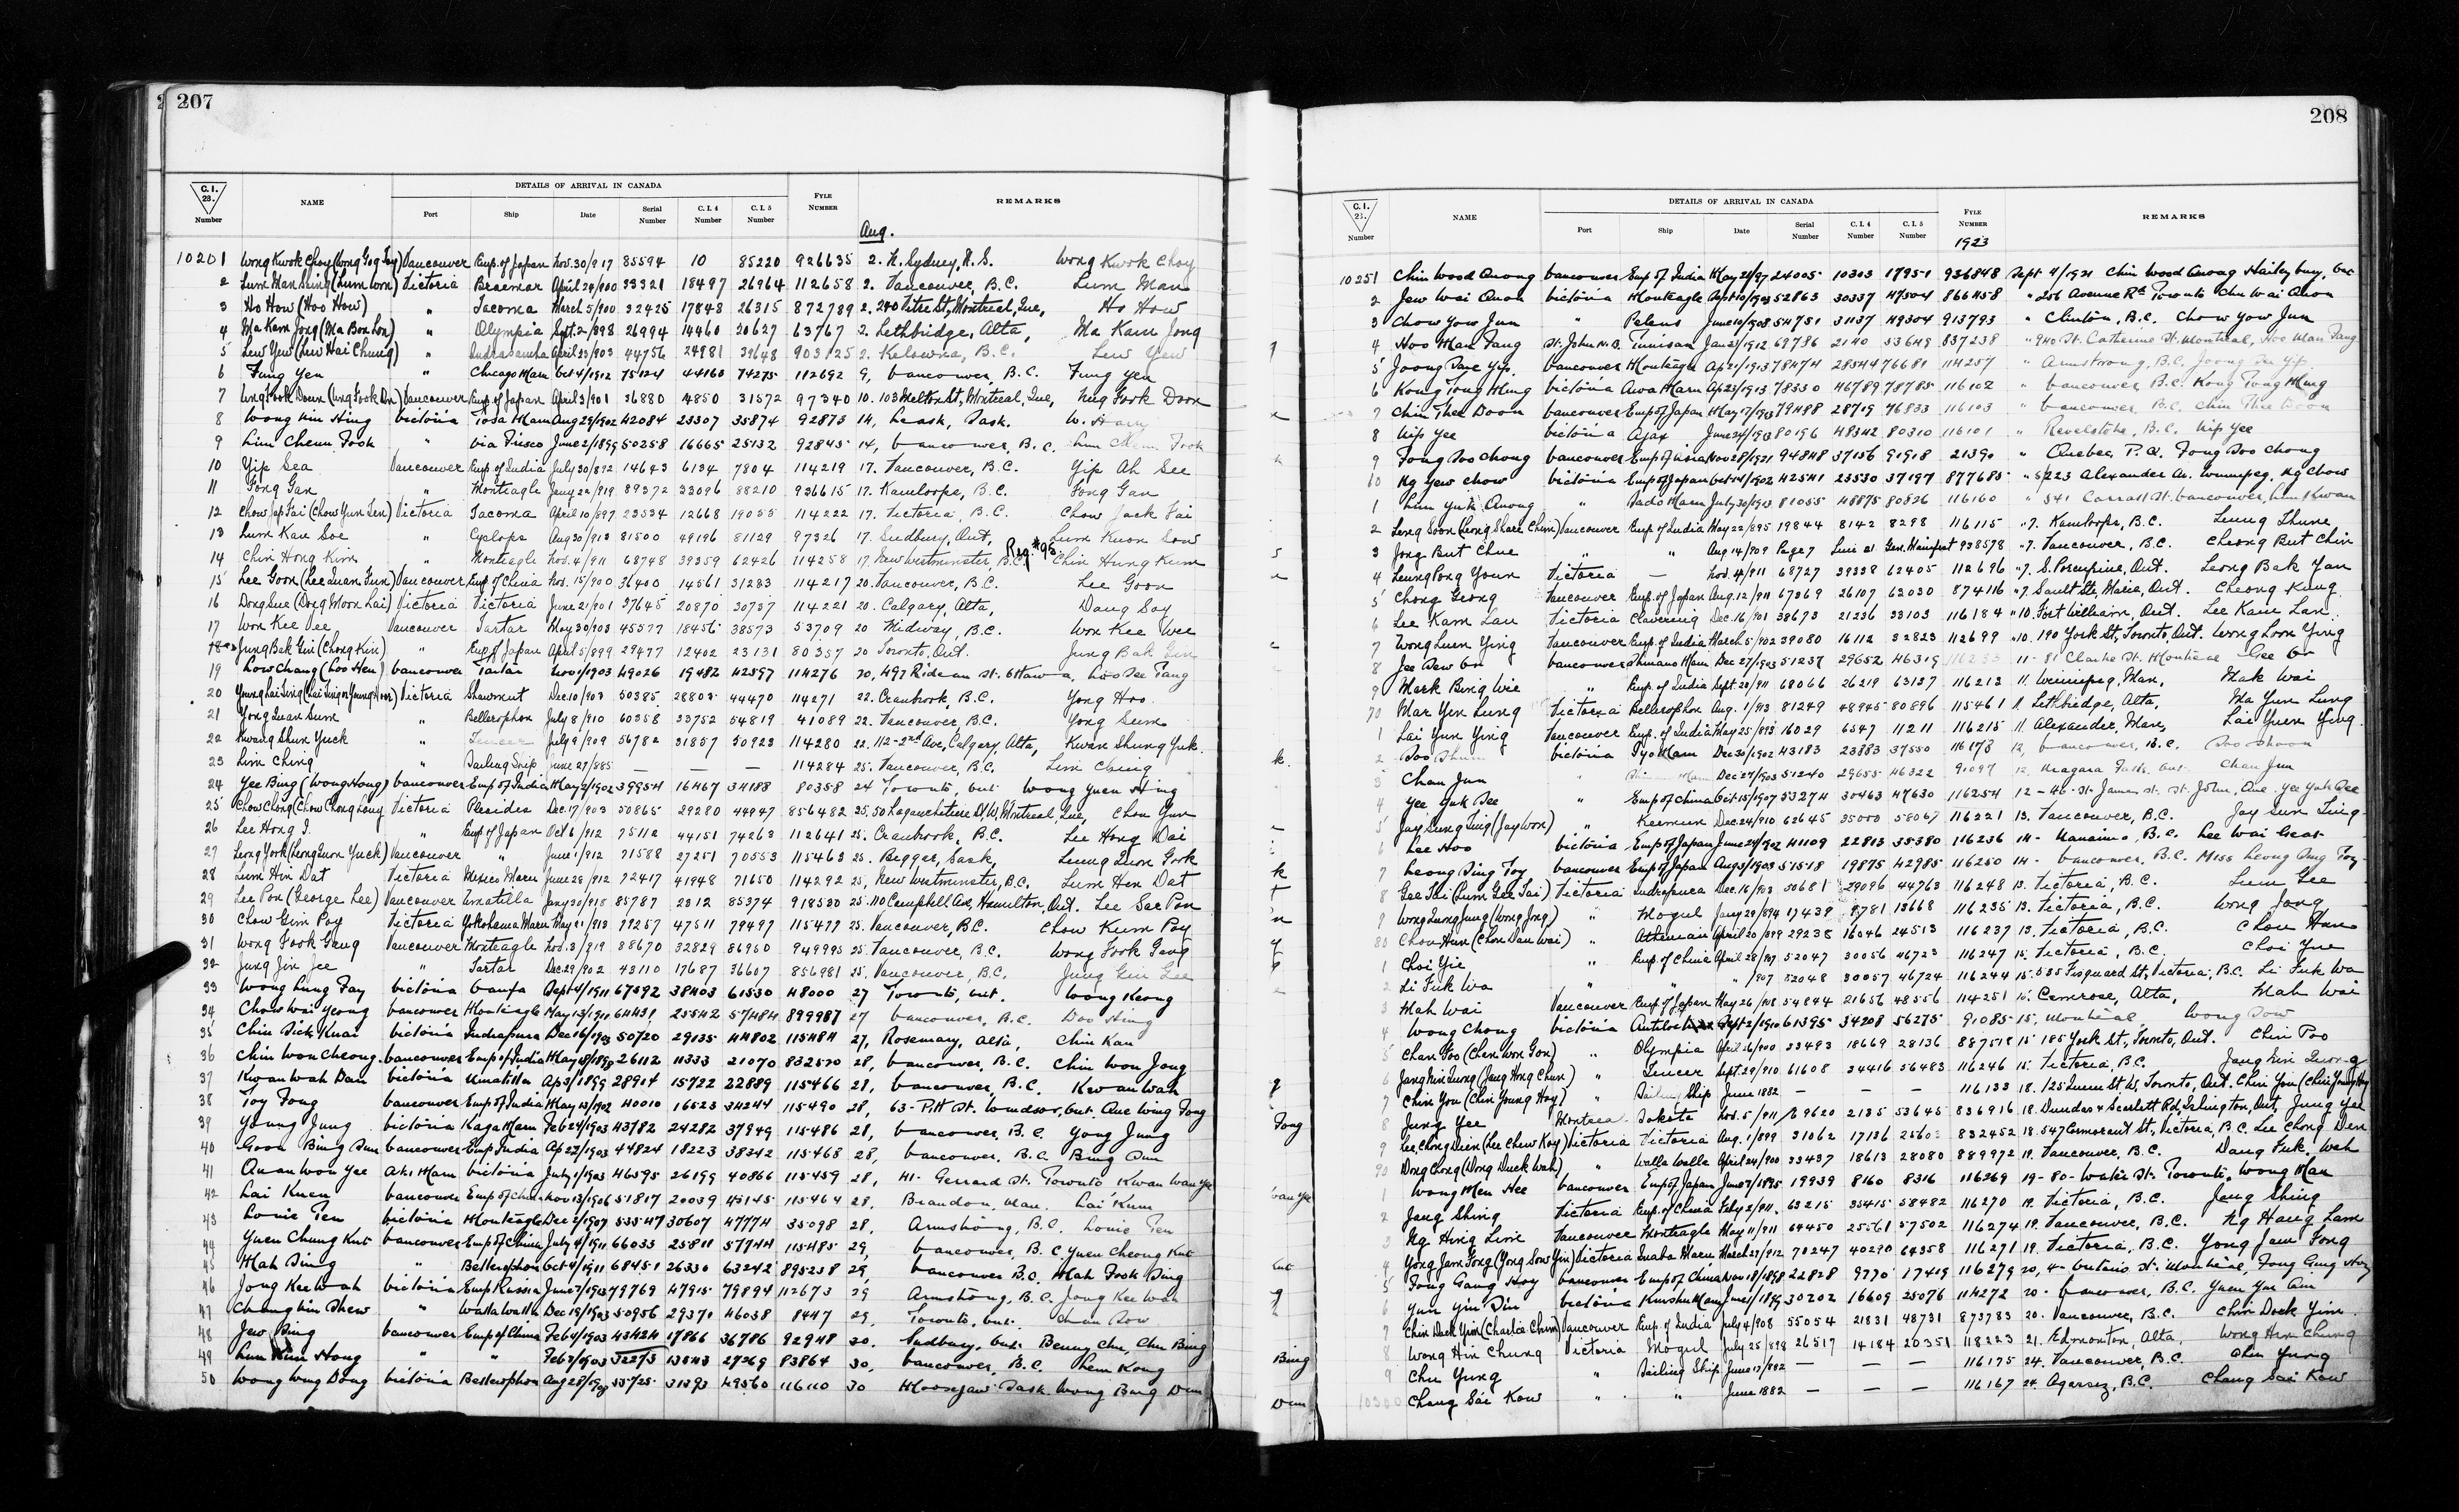 207
C.I. 28. Number
NAME
DETAILS OF ARRIVAL IN CANADA
Port Ship Date Serial Number C.I.4 Number C.I.5 Number
FYLE NUMBER
REMARKS
Aug.
10201 Wong Kwok Choy (Wong Gog Toy) Vancouver Emp. of Japan Nov. 30/917 85594 10 85220 926635 2. N. Sydney, N.S. Wong Kwok Choy
2 Lum Man Sing (Lum Won) Victoria Braemar April 24/900 33321 18497 26964 112658 2. Vancouver, B.C. Lum Man
3 Ho How (Hoo How) " Tacoma March 5/900 32425 17848 26315 872789 2. 240 Vitre St, Montreal, Que, Ho How
4 Ma Kam Jong (Ma Bon Lon) " Olympia Sept. 2/898 26994 14460 20627 63767 2. Lethbridge, Alta, Ma Kam Jong
5 Lew Yew (Lew Hai Chung) " Indrasamha April 23/903 44756 24981 39648 903125 2. Kelowna, B.C. Lew Yew
6 Fung Yen " Chicago Maru Oct 4/1912 75124 44160 74275 112692 9, Vancouver, B.C. Fung Yen
7 Ung Fook Doun (Ung Fook Don) Vancouver Emp. of Japan April 3/901 36880 4850 31572 97340 10. 103 Melton St, Montreal, Que, Neg Fook Doon
8 Wong Kim Hing Victoria Tosa Maru Aug 29/1902 42084 23307 35874 92873 14, Leask, Sask. W. Harry
9 Lim Cheun Fook " via Frisco June 2/1899 50258 16665 25132 92845 14, Vancouver, B.C. Lim Chem Fook
10 Yip Sea Vancouver Emp. of India July 30/892 14643 6134 7804 114219 17. Vancouver, B.C. Yip Ah See
11 Fong Gan " Monteagle Jany 22/919 89372 33096 88210 936615 17. Kamloops, B.C. Fong Gan
12 Chow Jap Tai (Chow Yun Sen) Victoria Tacoma April 10/897 23534 12668 19055 114222 17. Victoria, B.C. Chow Jack Tai
13 Lum Kau Soe " Cyclops Aug 30/913 81500 49196 81129 97326 17. Sudbury, Ont, Lum Kuon Sow
14 Chin Hong Kim " Monteagle Nov. 4/911 68748 39359 62426 114258 17. New Westminster, B.C. Reg. #95 Chin Hung Kum
15 Lee Goon (Lee Quan Fun) Vancouver Emp. of China Nov. 15/900 36400 14561 31283 114217 20. Vancouver, B.C. Lee Goon
16 Dong Sue (Dong Moon Lai) Victoria Victoria June 21/901 37645 20870 30737 114221 20. Calgary, Alta, Dang Soy
17 Won Kee Vee Vancouver Tartar May 30/903 45577 18456 38573 53709 20 Midway, B.C. Won Kee Wee
18 Jung Bak Gin (Chong Kin) " Emp. of Japan April 5/899 29477 12402 23131 80357 20 Toronto, Ont. Jung Bak Gin
19 Low Chang (Loo Hen) Vancouver Tartar Nov 1/1903 49026 19482 42597 114276 20, 497 Rideau St. Ottawa, Loo See Tang
20 Young Lai Sing Victoria Shawmut Dec. 10/903 50385 28803 44470 114271 22. Cranbrook, B.C. Yong Hoo
21 Yong Quan Sum " Bellerophon July 8/910 60358 33752 54819 41089 22. Vancouver, B.C. Yong Sum
22 Kwang Shun Yuck " Teucer July 9/909 56782 31857 50923 114280 22. 112-2nd Ave, Calgary, Alta, Kwan Shung Yuk
23 Lim Ching " Sailing Ship June 27/885 — — — 114284 25. Vancouver, B.C. Lim Ching
24 Yee Bing (Wong Hong) Vancouver Emp of India May 2/1902 39954 16467 34188 80358 24 Toronto, Ont. Wong Yuen Hing
25 Chow Chong (Chow Chong Long) Victoria Pleiades Dec. 17/903 50865 29280 44947 856482 25. 50 Lagauchetiere St. W, Montreal, Que, Chou Yun
26 Lee Hong I. " Emp. of Japan Oct 6/912 75112 44151 74263 112641 25. Cranbrook, B.C. Lee Hong Dai
27 Leong York (Leong Quon Yuck) Vancouver " June 1/912 71588 27251 70553 115463 25. Biggar, Sask, Leung Quon Gook
28 Lum Hin Dat Victoria Mexico Maru June 28/912 72417 41948 71650 114292 25, New Westminster, B.C. Lum Hen Dat
29 Lee Pon (George Lee) Vancouver Umatilla Jany 30/918 85787 2312 85374 918530 25. 110 Campbell Ave, Hamilton, Ont. Lee See Pon
30 Chow Gim Poy Victoria Yokohama Maru May 21/913 79257 47511 79497 115477 25. Vancouver, B.C. Chow Kum Poy
31 Wong Fook Gang Vancouver Monteagle Nov. 3/919 88670 32829 86950 949995 25. Vancouver, B.C. Wong Fook Gang
32 Jung Jin Jee " Tartar Dec. 29/902 43110 17687 36607 856981 25. Vancouver, B.C. Jung Gin Gee
33 Wong Lung Fay Victoria Oanfa Sept 4/1911 67592 38403 61530 48000 27 Toronto, Ont. Wong Keong
34 Chow Wai Yeong Vancouver Monteagle May 13/1911 64431 25542 57484 899987 27 Vancouver, B.C. Doo Hing
35 Chin Dick Knai Victoria Indrapura Dec 16/1903 50720 29135 44802 115484 27, Rosemary, Alta, Chin Kau
36 Chin Won Cheong Vancouver Emp of India May 18/1898 26112 11333 21070 832570 28, Vancouver, B.C. Chin Won Jong
37 Kwan Wah Dan Victoria Umatilla Ap 3/1899 28914 15722 22889 115466 28, Vancouver, B.C. Kwan Wah
38 Toy Fong Vancouver Emp of India May 13/1902 40010 16523 34244 115490 28, 63-Pitt St. Windsor, Ont. Que Wing Fong
39 Young Jung Victoria Kaga Maru Feb 24/1903 43782 24282 37949 115486 28, Vancouver, B.C. Yong Jung
40 Goon Bing Dun Vancouver Emp India Ap 27/1903 44824 18223 38342 115468 28, Vancouver, B.C. Bing Dun
41 Quan Won Yee Aki Maru Victoria July 1/1903 46595 26199 40866 115459 28, 41- Gerrard St. Toronto Kwan Wan Ye
42 Lai Kuen Vancouver Emp of China Nov 13/1906 51817 20039 45145 115464 28, Brandon, Man. Lai Kum
43 Louie Ten Victoria Monteagle Dec 2/1907 53547 30607 47774 35098 28, Armstrong, B.C. Louie Ten
44 Yuen Chung Kut Vancouver Emp of China July 4/1911 66033 25811 57944 115485 29, Vancouver, B.C. Yuen Cheong Kut
45 Mah Sing " Bellerophon Oct 4/1911 68451 26330 63242 895238 29, Vancouver B.C. Mah Fook Sing
46 Jong Kee Wah Victoria Emp Russia June 7/1913 79769 47915 79894 112673 29 Armstrong, B.C. Jong Kee Wah
47 Chong Lin Shew " Walla Walla Dec 19/1903 50956 29370 46038 8447 29, Toronto, Ont.
48 Jew Bing Vancouver Emp of China Feb 4/1903 43424 17866 36786 92948 30. Sudbury, Ont. Benny Chu, Chu Bing
49 Lum Kim Hong " " Feb 3/1903 32273 13543 27269 83864 30, Vancouver, B.C. Lem Kong
50 Wong Wing Dong Victoria Bellerophon Aug 28/1908 55725 31393 49560 116110 30 Moosejaw Sask Wong Bing Dun
208
C.I. 23. Number
NAME
DETAILS OF ARRIVAL IN CANADA
Port Ship Date Serial Number C.I.4 Number C.I.5 Number
FYLE NUMBER
REMARKS
1923
10251 Chin Wood Quong Vancouver Emp of India May 21/97 24005 10303 17951 936848 Sept 4/1921 Chin Wood Quong Haileybury, Ont
2 Jew Wai Quon Victoria Monteagle Sept 10/1903 52863 30337 47504 866458 " 256 Avenue Rd Toronto Chu Wai Quon
3 Chow Yow Jun " Peleus June 10/1908 54751 31137 49304 913793 " Clinton, B.C. Chow Yow Jun
4 Hoo Man Fang St. John N.B. Tunisian Jan 21/1912 69786 2140 53649 837238 " 940 St. Catherine St. Montreal, Hoo Man Fang
5 Joong Dae Yip Vancouver Monteagle Ap 21/1913 78474 28344 76681 114257 " Armstrong, B.C. Joong Du Yip
6 Kong Tong Ming Victoria Awa Maru Ap 23/1913 78530 46789 78785 116102 " Vancouver B.C. Kong Tong Ming
7 Chin Thee Doon Vancouver Emp of Japan May 17/1913 79488 28719 76833 116103 " Vancouver, B.C. Chin Thee Doon
8 Nip Yee Victoria Ajax June 24/1913 80196 48342 80310 116101 " Revelstoke, B.C. Nip Yee
9 Fong Doo Chong Vancouver Emp of Asia Nov 28/1921 94848 37156 91918 21390 " Quebec, P.Q. Fong Doo Chong
60 Ng Yew Chow Victoria Emp of Japan Oct 14/1902 42541 23530 37197 877685 " 5223 Alexander Av. Winnipeg, Ng Chow
1 Lim Yuk Quong " Sado Maru July 30/1913 81055 48875 80826 116160 " 541 Carrall St. Vancouver, Lim Kwan
2 Leong Soon (Leong Share Chun) Vancouver Emp. of India May 22/895 19844 8142 8298 116115 " 7. Kamloops, B.C. Leung Thune
3 Jong But Chue " " Aug 14/909 Page 7 Line 21 Gen. Manifest 938578 " 7. Vancouver, B.C. Cheong But Chin
4 Leung Pong Youn Victoria — Nov. 4/911 68727 39338 62405 112696 " 7. S. Porcupine, Ont. Leong Bak Yan
5 Chong Geong Vancouver Emp. of Japan Aug. 12/911 67369 26107 63030 87416 " 7. Sault Ste. Marie, Ont. Cheong Kung
6 Lee Kam Lau Victoria Clavering Dec. 16/901 38673 21236 33103 116184 " 10. Fort William, Ont. Lee Kam Lan
7 Wong Lun Ying Vancouver Emp. of India March 5/902 39080 16112 32823 112699 " 10. 190 York St, Toronto, Ont. Wong Loon Ying
8 Jee Dew On Vancouver Shinano Maru Dec 27/1903 51237 29652 46319 11 - 81 Clarke St. Montreal Gee On
9 Mark Bing Wie " Emp. of India Sept. 20/911 68066 26219 63137 116213 11. Winnipeg, Man, Mak Wai
70 Mar Yen Lung Victoria Bellerophon Aug. 1/913 81249 48945 80896 115461 11. Lethbridge, Alta, Ma Yun Lung
1 Lai Yun Ying Vancouver Emp. of India May 25/893 16029 6547 11211 116215 11. Alexander, Man, Lai Yuen Ying
2 Doo Shun Victoria Tyo Maru Dec 30/1902 43183 23883 37550 116178 12, Vancouver, B.C. Doo Shoon
3 Chan Jun " Dec 27/1903 51240 29655 46322 91097 12, Niagara Falls, Ont. Chan Jun
4 Yee Yuk Dee " Emp of China Oct 15/1907 53274 30463 47630 116254 12 - 40 - St. James St. St. John, Que. Yee Yuk Dee
5 Jay Lung Ting (Jay Won) " Keemun Dec. 24/910 62645 35000 58067 116221 13. Vancouver, B.C. Jay Sun Ting
6 Lee Hoo Victoria Emp of Japan June 24/1902 41109 22813 35380 116236 14 - Nanaimo, B.C. Lee Wai Geas
7 Leong Ding Toy Vancouver Emp of Japan Aug 3/1903 51518 19875 42985 116250 14 - Vancouver, B.C. Miss Leong Ding Toy
8 Gee Tai (Lum Gee Tai) Victoria Indrapura Dec. 16/903 50681 29096 44763 116248 13. Victoria, B.C. Lum Gee
9 Wong Lung Jung (Wong Jong) " Mogul Jany 29/894 17439 9781 13668 116235 13. Victoria, B.C. Wong Jong
80 Chou Hun (Chou Dan Wai) " Athenian April 20/899 29238 16046 24513 116237 13. Victoria, B.C. Chou Han
1 Choi Yie " Emp. of China April 28/907 52047 30056 46723 116247 15. Victoria, B.C. Choi Yue
2 Li Fuk Wa " " " /907 52048 30057 46724 116244 15. 535 Fisguard St, Victoria, B.C. Li Fuk Wa
3 Mah Wai Vancouver Emp. of Japan May 26/908 54844 21656 48556 114251 15. Camrose, Alta, Mah Wai
4 Wong Chong Victoria Antilochus Sept 2/1910 61395 34208 56275 91085 15, Montreal Wong Dow
5 Chan Foo (Chan Won Gon) " Olympia April 26/900 33493 18669 28136 887518 15 185 York St, Toronto, Ont. Chin Poo
6 Jang Kin Lung (Jang Hong Chun) " Teucer Sept. 29/910 61608 34416 56483 116246 15. Victoria, B.C. Jang Kin Quong
7 Chin You (Chin Young Hoy) " Sailing Ship June 1882 — — — 116133 18. 125 Queen St W, Toronto, Ont. Chin You (Chin Young Hoy
8 Jung Yee Montreal Sokoto Nov. 5/911 69620 2135 53645 836916 18. Dundas & Scarlett Rd, Islington, Ont, Jung Yee
9 Lee Chong Dein (Lee Chew Koy) Victoria Victoria Aug. 1/899 31062 17136 25603 832452 18. 547 Cormorant St, Victoria, B.C. Lee Chong Den
90 Dong Chong (Dong Duck Wah) " Walla Walla April 24/900 33437 18613 28080 889972 19. Vancouver, B.C. Dang Fuk Wah
1 Wong Men Hee Vancouver Emp of Japan June 7/1895 19939 8160 8316 116269 19 - 80 - Water St. Toronto, Wong Man
2 Jang Shing Victoria Emp. of China Feby 2/911 63215 35415 58482 116270 19. Victoria, B.C. Jang Shing
3 Ng Hing Lim Vancouver Monteagle May 11/911 64450 25561 57502 116274 19. Vancouver, B.C. Ng Hang Lam
4 Yong Jam Fong (Yong Sow Yin) Victoria Inaba Maru March 27/912 70247 40290 64358 116271 19. Victoria, B.C. Yong Jam Fong
5 Fong Gang Hoy Vancouver Emp of China Nov 18/1898 22828 9770 17419 116279 20, 4 - Ontario St. Montreal, Fong Gang Hoy
6 Yun Yin Din Victoria Kinshu Maru June 1/1899 30202 16609 25076 114272 20 - Vancouver, B.C. Yuen Yin Am
7 Chin Duck Yim (Charlie Chim) Vancouver Emp. of India July 4/908 55054 21831 48731 873783 20. Vancouver, B.C. Chin Dock Yim
8 Wong Hin Chung Victoria Mogul July 25/898 26517 14184 20351 118223 21. Edmonton, Alta. Wong Hin Chung
9 Chu Yung " Sailing Ship June 17/882 — — — 116175 24. Vancouver, B.C. Chu Yung
10300 Chong Sai Kow " " June 1882 — — — 116167 24. Agassiz, B.C. Chong Sai Kow